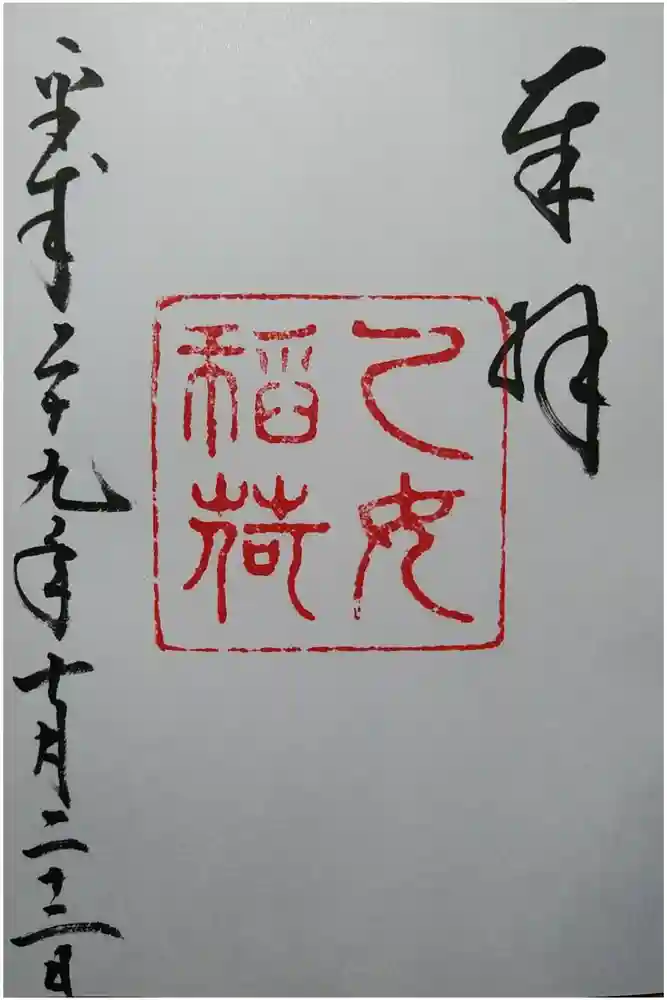 奉拝
乙女
稲荷
平成二十九年十月二十二日